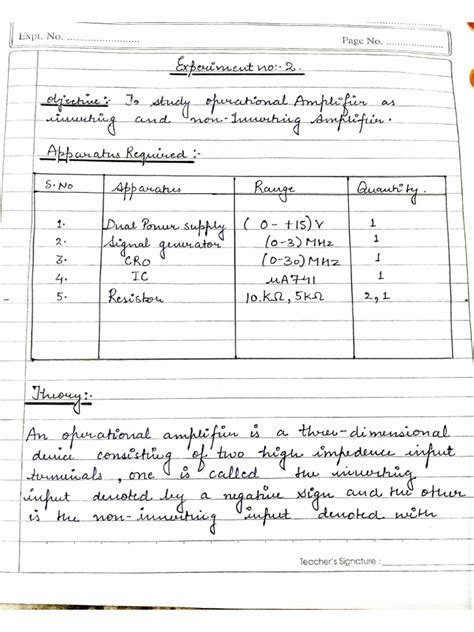 Expt. No. ........................
Page No. ....................
Experiment no:- 2.
Objective:- To study operational Amplifier as
inverting and non-Inverting Amplifier.
Apparatus Required :-
S.No Apparatus Range Quantity.
1. Dual Power supply (0-+15)V 1
2. Signal generator (0-3) MHz 1
3. CRO (0-30) MHz 1
4. IC μA741 1
5. Resistor 10.KΩ, 5KΩ 2,1
Theory:-
An operational amplifier is a three-dimensional
device consisting of two high impedence input
terminals, one is called the inverting
input denoted by a negative sign and the other
is the non-inverting input denoted with
Teacher's Signature :